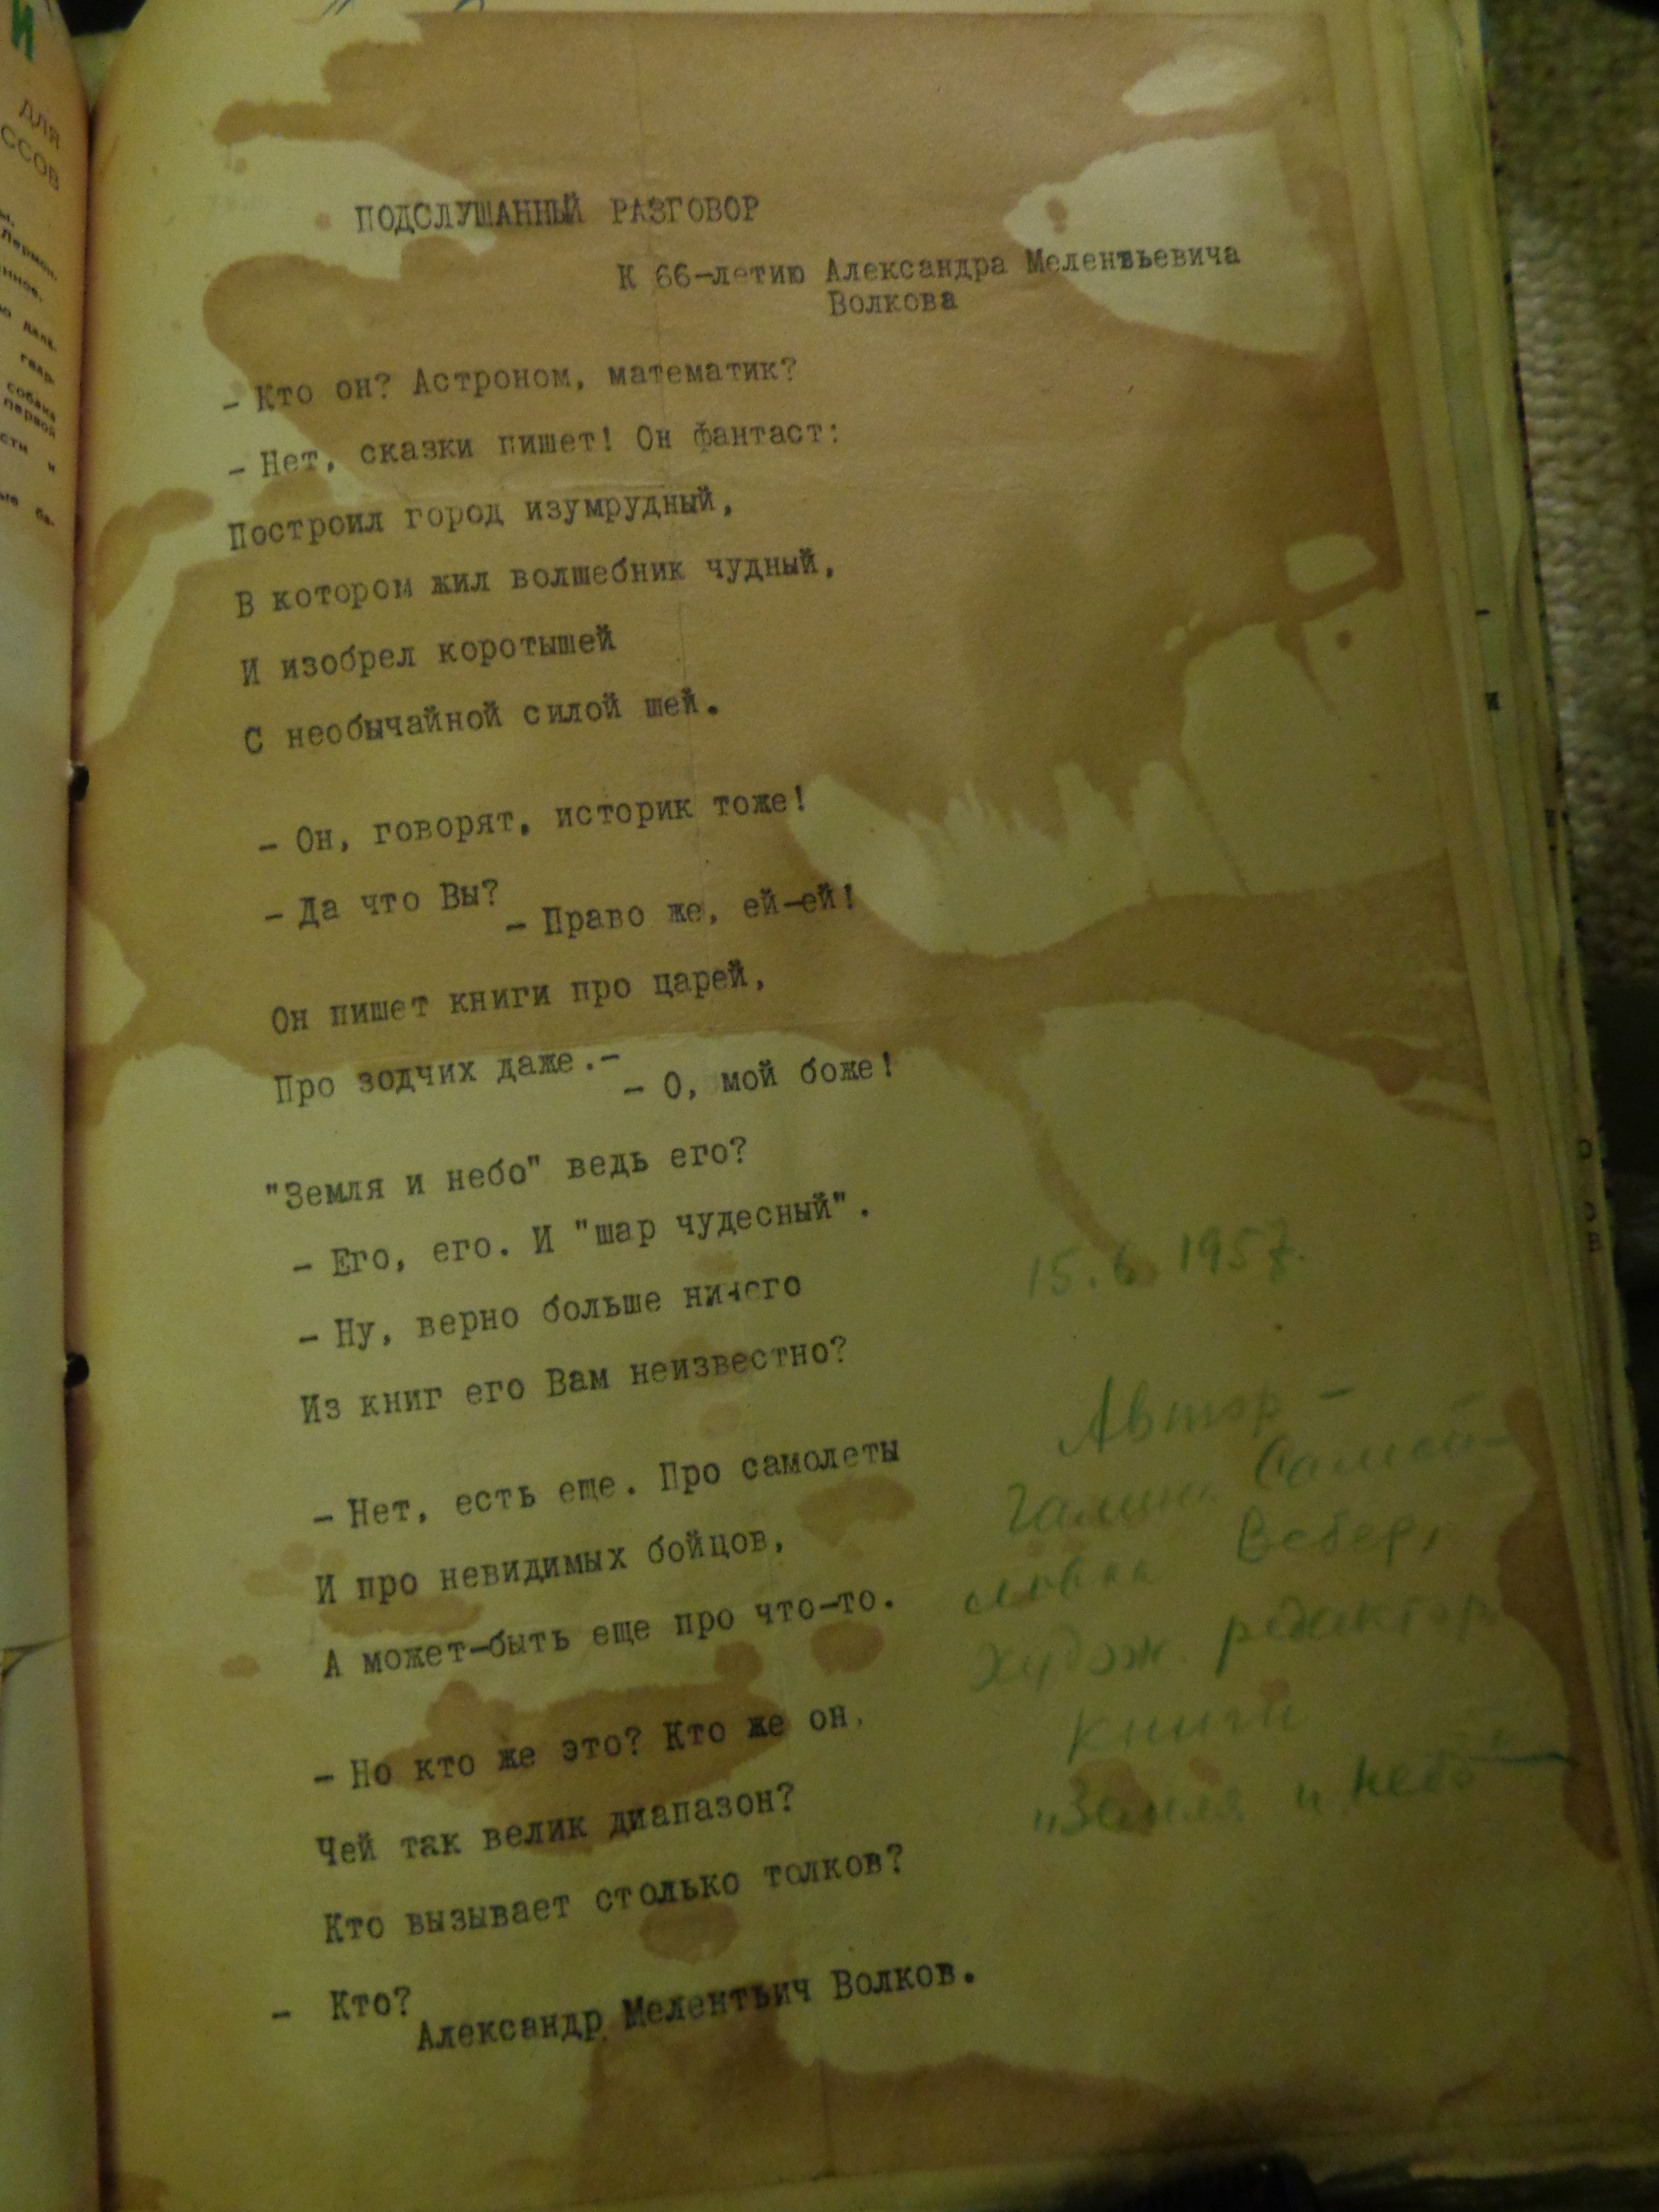 ПОДСЛУШАННЫЙ РАЗГОВОР
К 66-летию Александра Мелентьевича
Волкова
- Кто он? Астроном, математик?
- Нет, сказки пишет! Он фантаст:
Построил город изумрудный,
В котором жил волшебник чудный,
И изобрел коротышей
С необычайной силой шей.
- Он, говорят, историк тоже!
- Да что Вы?
- Право же, ей-ей!
Он пишет книги про царей,
Про зодчих даже.-
- О, мой боже!
"Земля и небо" ведь его?
- Его, его. И "шар чудесный".
- Ну, верно больше ничего
Из книг его Вам неизвестно?
- Нет, есть еще. Про самолеты
И про невидимых бойцов,
А может-быть еще про что-то.
- Но кто же это? Кто же он,
Чей так велик диапазон?
Кто вызывает столько толков?
- Кто?
Александр Мелентьич Волков.
15.6.1957.
Автор -
Галина Самой-
ловна Вебер,
худож. редактор
книги
„Земля и небо"
И
ДЛЯ
ССОВ
собака
первой
сти и